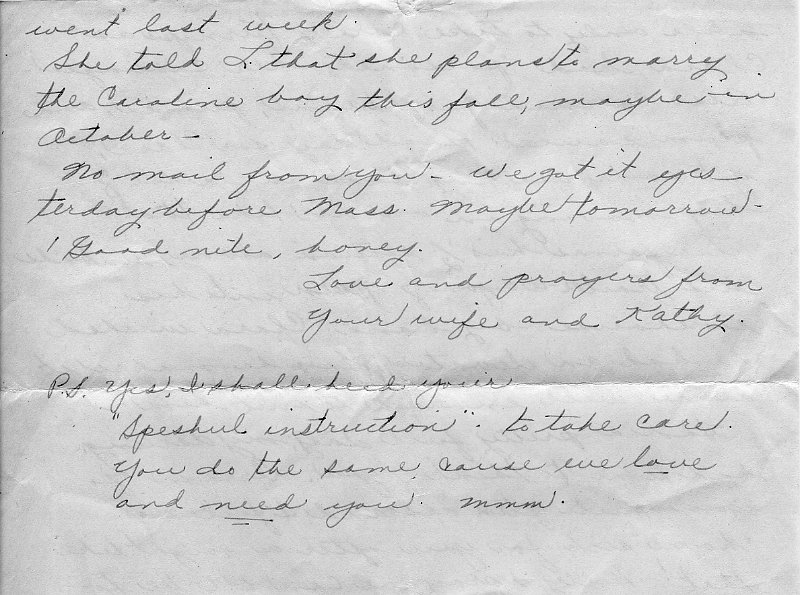 went last week.
She told L. that she plans to marry
the Caroline boy this fall, maybe in
October —
No mail from you — we got it yes-
terday before Mass. Maybe tomorrow —
! Good nite, honey.
Love and prayers from
Your wife and Kathy.
P.S. Yes, I shall heed your
"Speshul instruction" to take care.
You do the same 'cause we love
and need you. mmm.